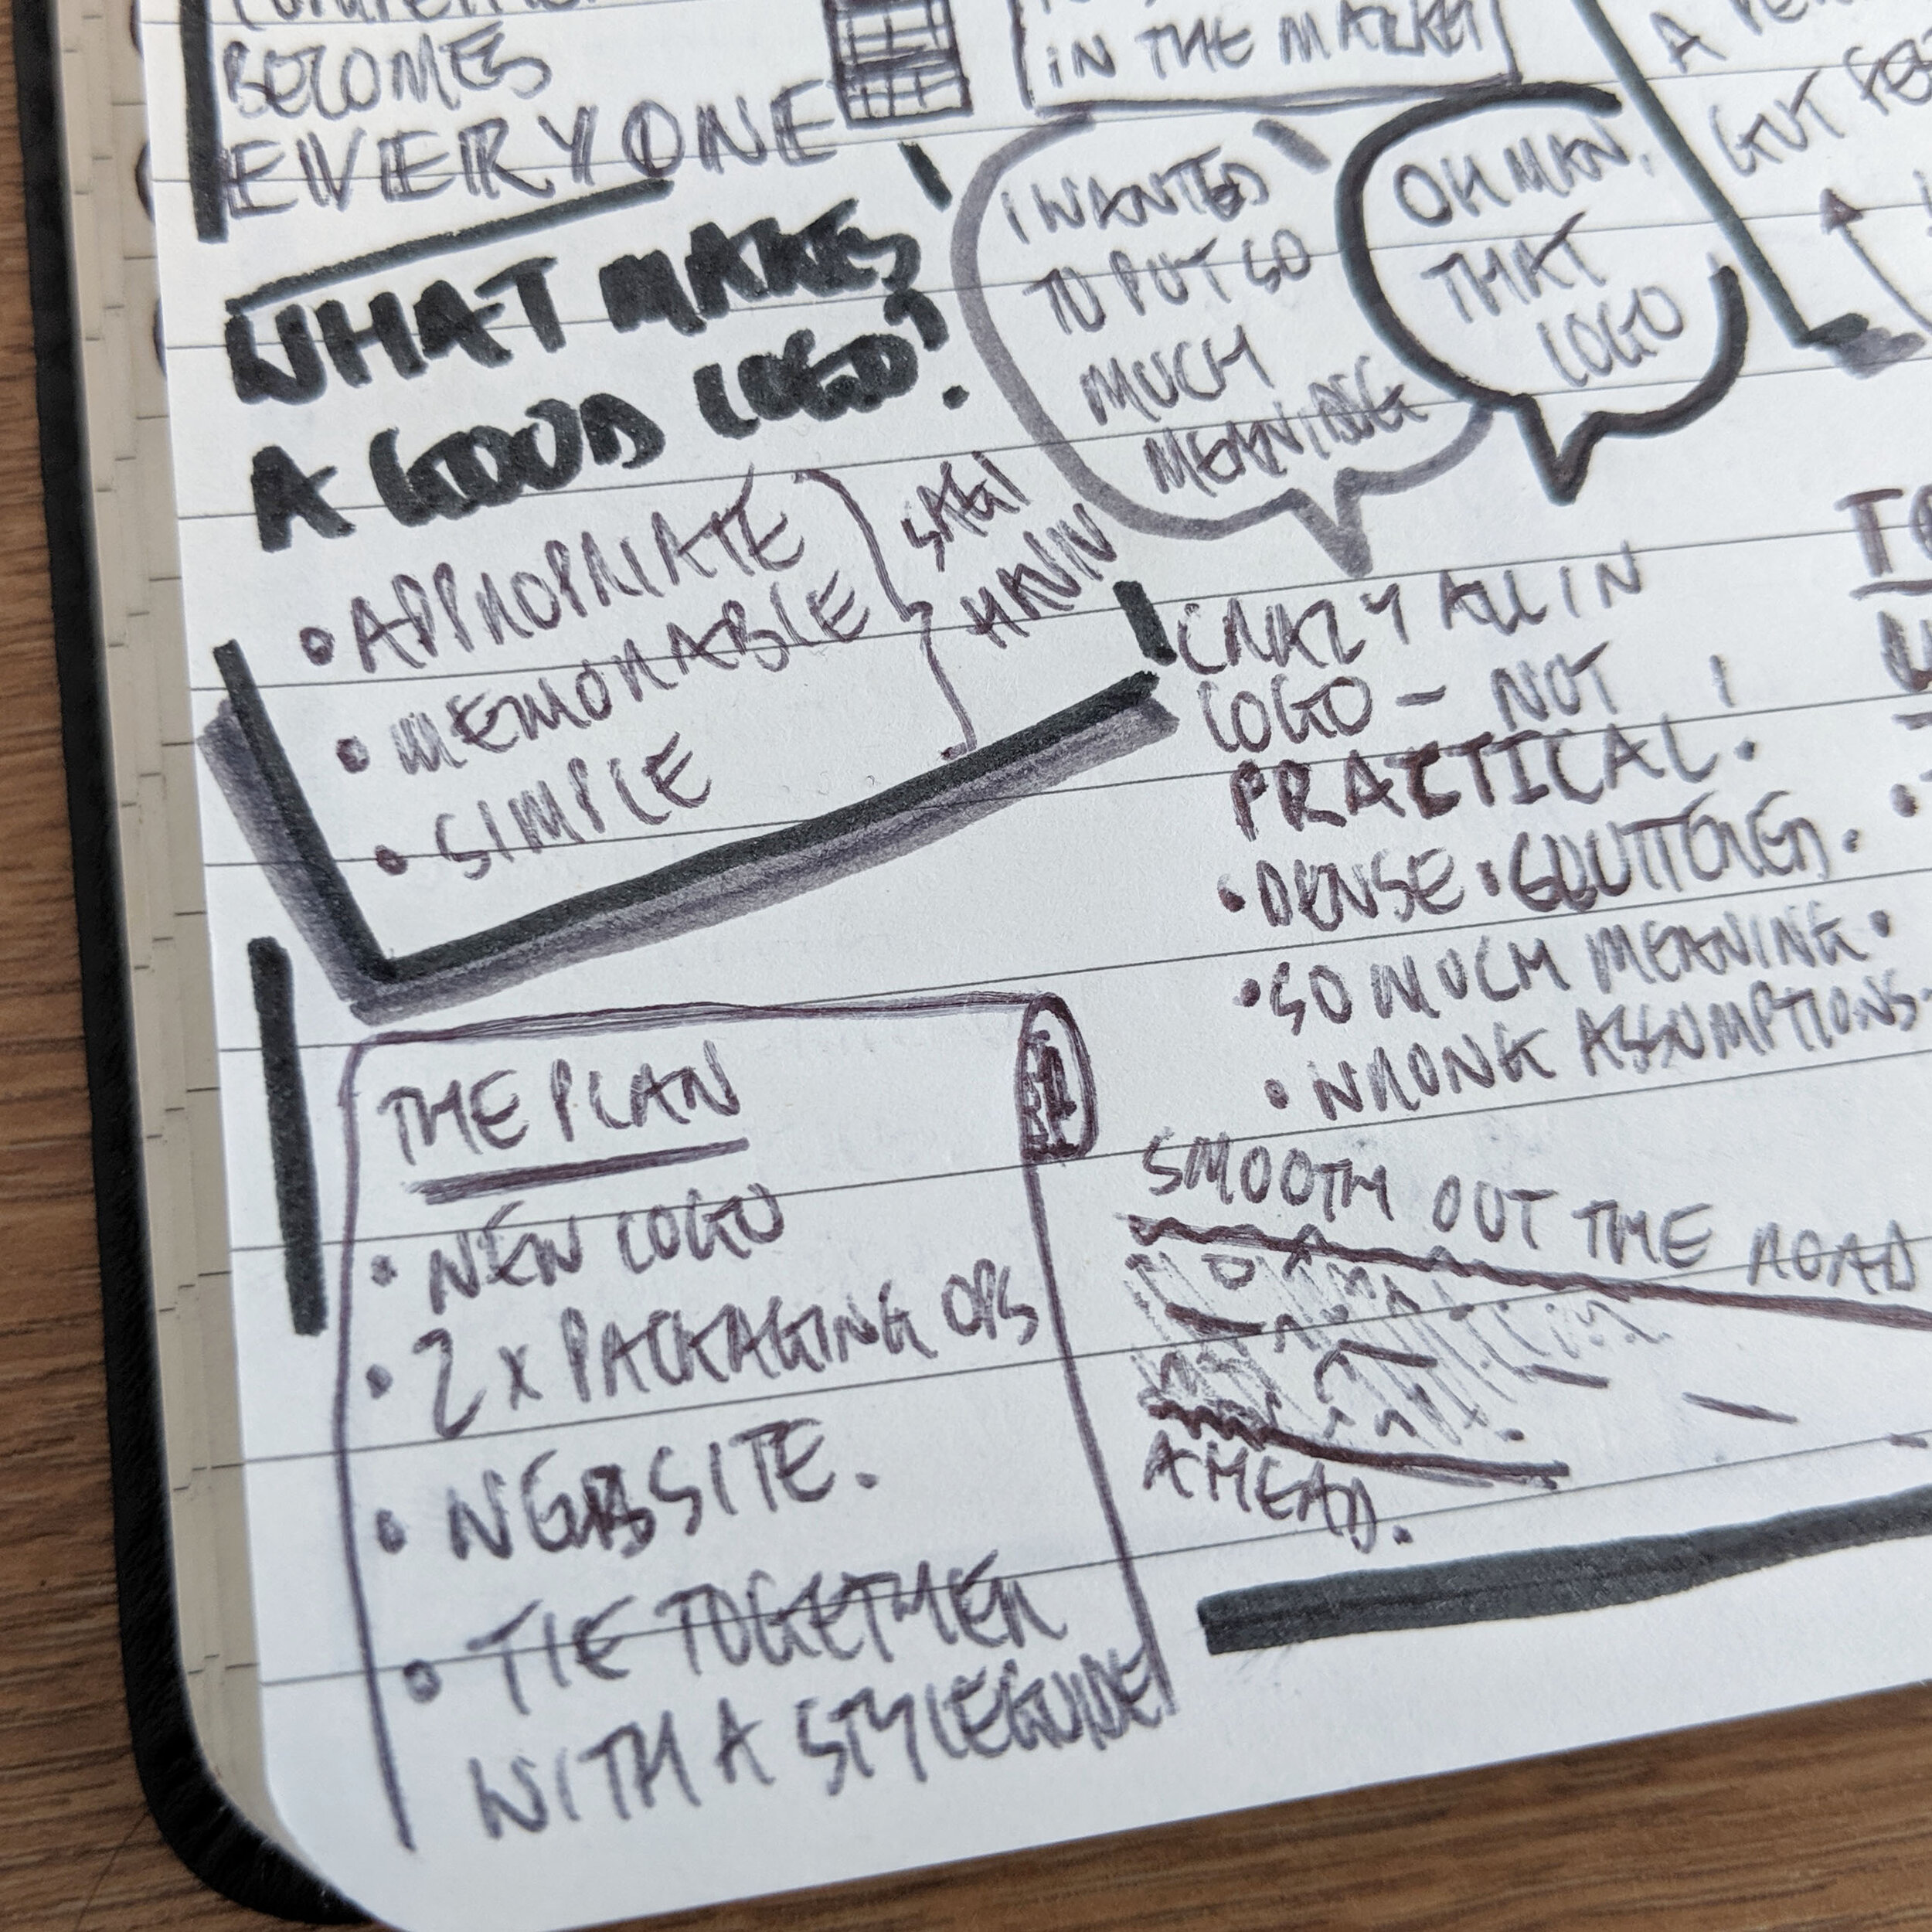 BECOMES
EVERYONE
IN THE MARKET
GUT
WHAT MAKES
A GOOD LOGO?
• APPROPRIATE
• MEMORABLE
• SIMPLE
SAGI
HAVIV
I WANTED
TO PUT SO
MUCH
MEANING
OH MAN,
THAT
LOGO
CRAZY ALL IN
LOGO - NOT
PRACTICAL.
• DENSE • GLUTTONED.
• SO MUCH MEANING.
• WRONG ASSUMPTIONS
SMOOTH OUT THE ROAD
AHEAD.
THE PLAN
• NEW LOGO
• 2 x PACKAGING OPS
• WEBSITE.
• TIE TOGETHER
WITH A STYLEGUIDE